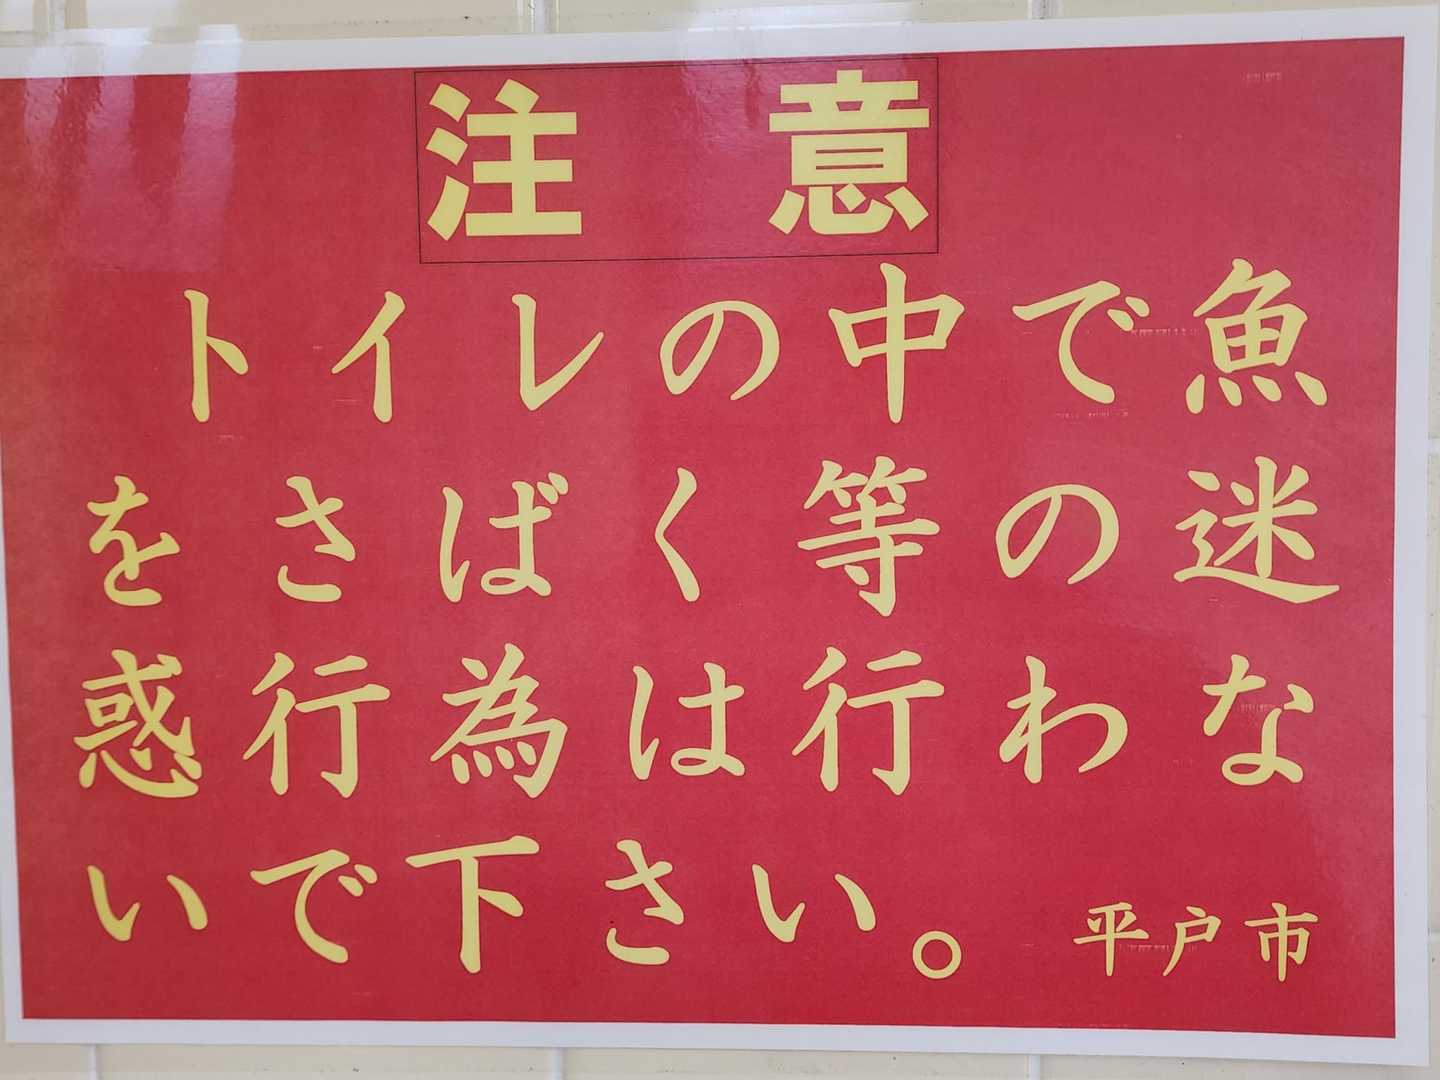 注　意
トイレの中で魚
をさばく等の迷
惑行為は行わな
いで下さい。 平戸市